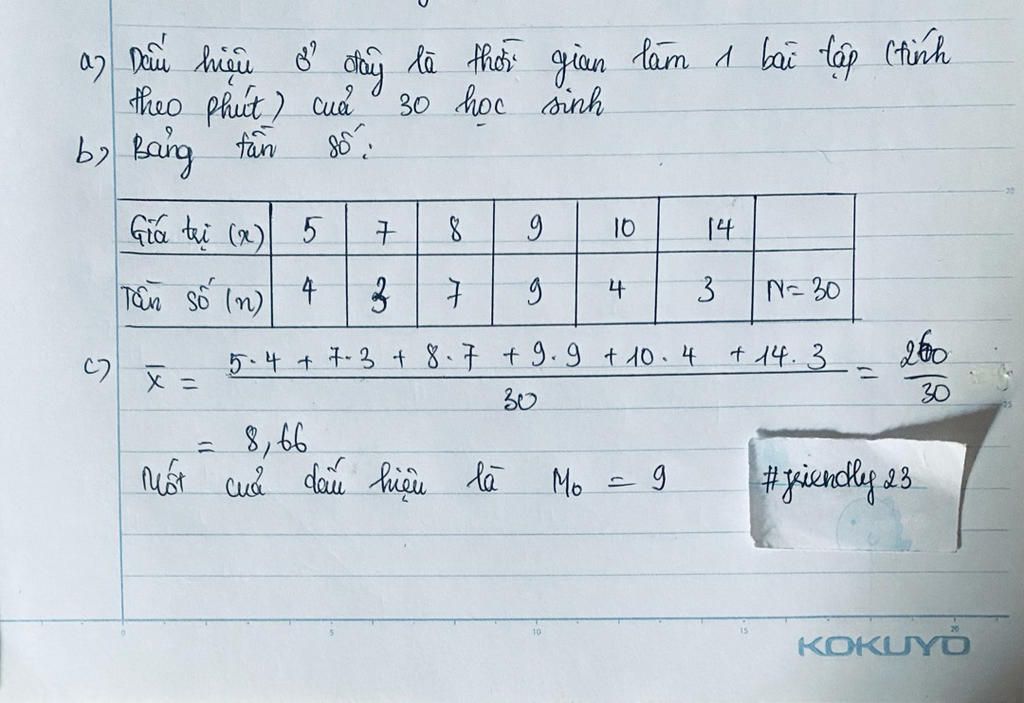 a) Dấu hiệu ở đây là thời gian làm 1 bài tập (tính
theo phút) của 30 học sinh
b) Bảng tần số:
Giá trị (x) 5 7 8 9 10 14
Tần số (n) 4 3 7 9 4 3 N = 30
c) x̄ = (5.4 + 7.3 + 8.7 + 9.9 + 10.4 + 14.3)/30 = 260/30
= 8,66
Mốt của dấu hiệu là M₀ = 9
#friendly23
0 5 10 15 20
20
25
KOKUYO